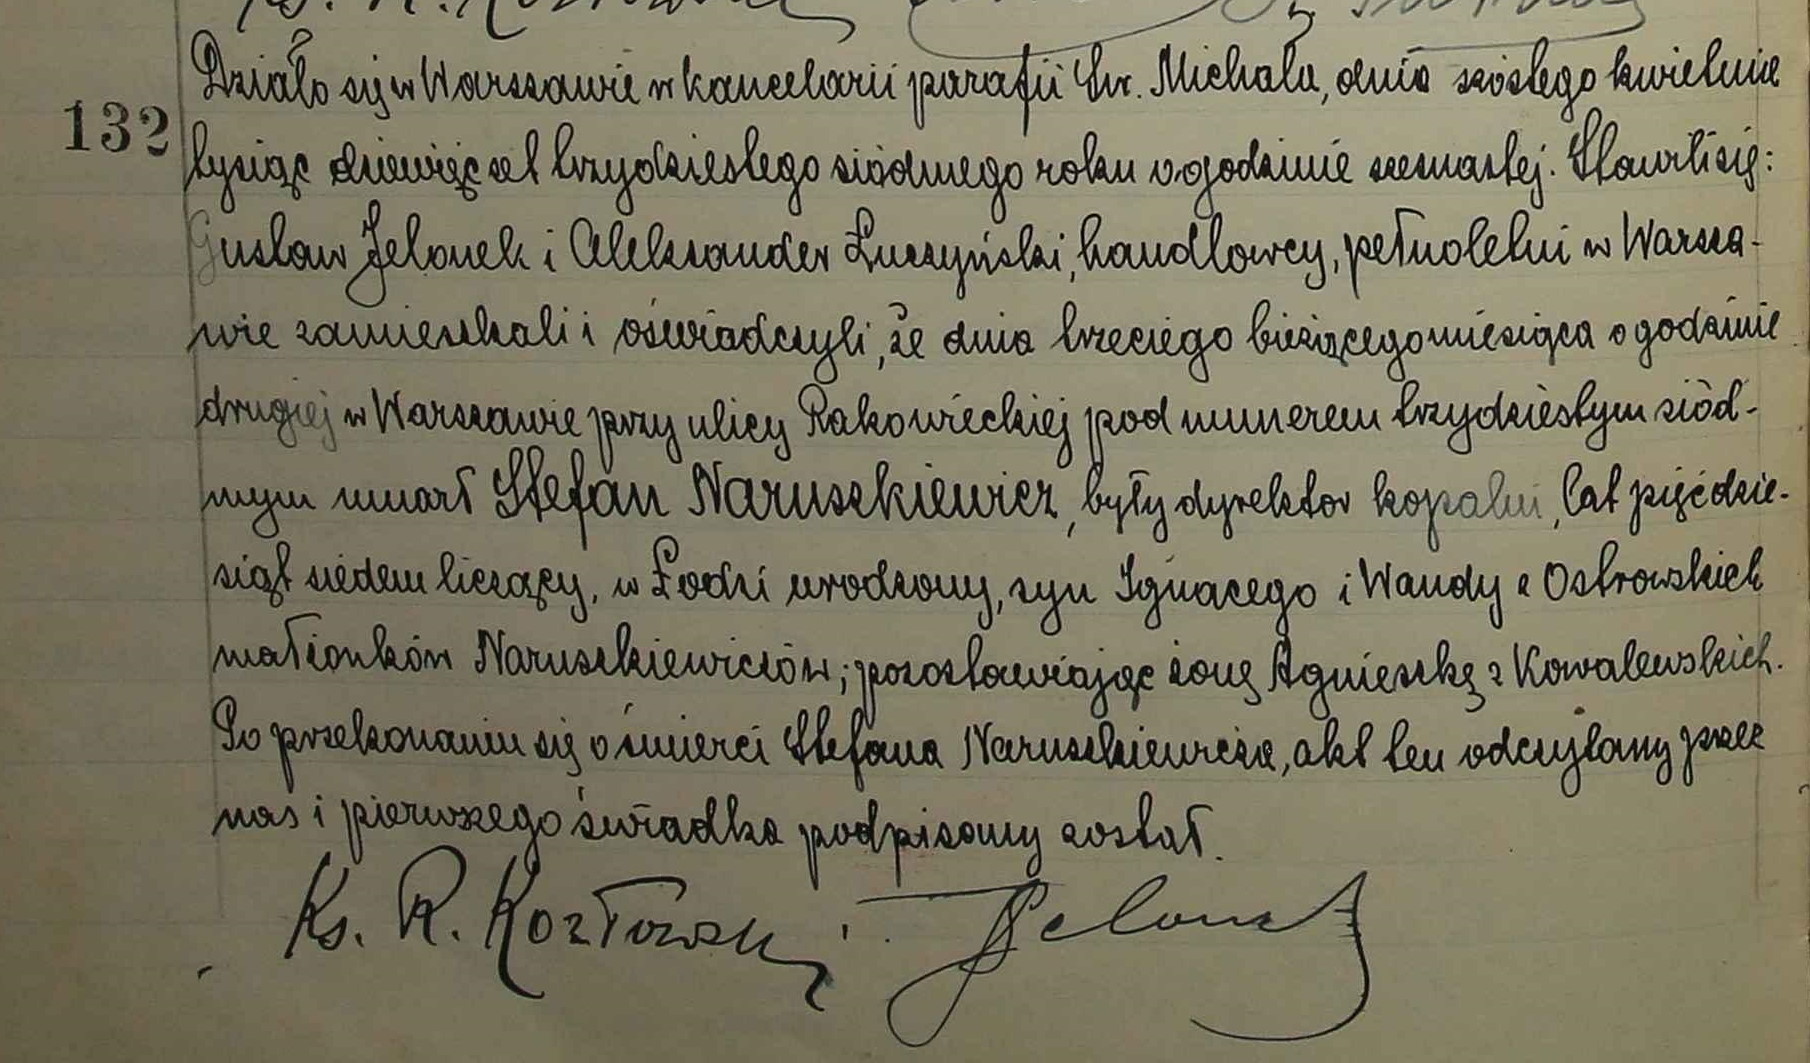 Ks. R. Kozłowski
132
Działo się w Warszawie w kancelarii parafii Św. Michała, dnia szóstego kwietnia
tysiąc dziewięćset trzydziestego siódmego roku o godzinie szesnastej. Stawili się:
Gustaw Jelonek i Aleksander Łuczyński, handlowcy, pełnoletni w Warsza-
wie zamieszkali i oświadczyli, że dnia trzeciego bieżącego miesiąca o godzinie
drugiej w Warszawie przy ulicy Rakowieckiej pod numerem trzydziestym siód-
mym umarł Stefan Naruszkiewicz, były dyrektor kopalni, lat pięćdzie-
siąt siedem liczący, w Łodzi urodzony, syn Ignacego i Wandy z Ostrowskich
małżonków Naruszkiewiczów; pozostawiając żonę Agnieszkę z Kowalewskich.
Po przekonaniu się o śmierci Stefana Naruszkiewicza, akt ten odczytany przez
nas i pierwszego świadka podpisany został.
Ks. R. Kozłowski G. Jelonek